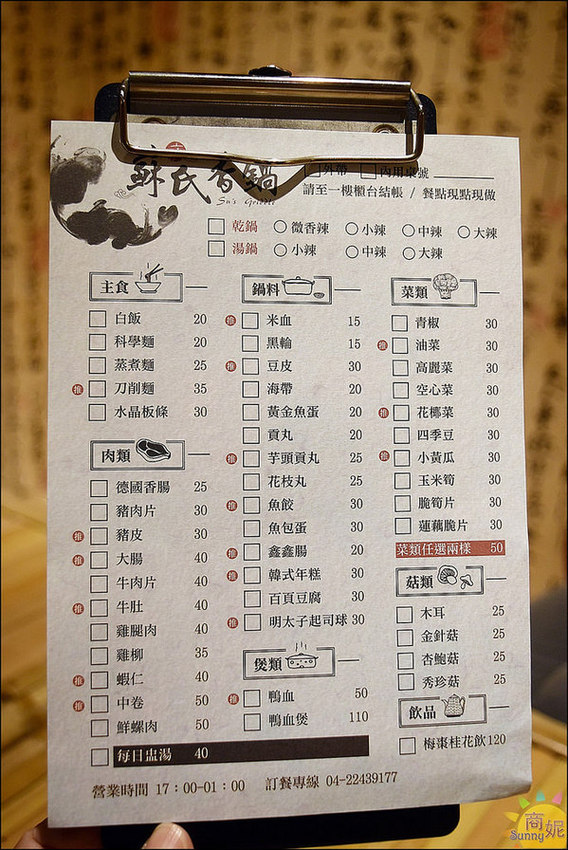 蘇氏香鍋
Su's Griddle
外帶 內用桌號
請至一樓櫃台結帳 / 餐點現點現做
乾鍋 微香辣 小辣 中辣 大辣
湯鍋 小辣 中辣 大辣
主食
白飯 20
科學麵 20
蒸煮麵 25
推 刀削麵 35
水晶板條 30
肉類
德國香腸 25
豬肉片 30
推 豬皮 30
推 大腸 40
牛肉片 40
推 牛肚 40
雞腿肉 40
雞柳 35
推 蝦仁 40
推 中卷 50
鮮螺肉 50
每日盅湯 40
鍋料
推 米血 15
黑輪 15
推 豆皮 30
海帶 20
黃金魚蛋 20
貢丸 20
推 芋頭貢丸 25
花枝丸 25
推 魚餃 30
魚包蛋 30
推 鑫鑫腸 20
推 韓式年糕 30
百頁豆腐 30
推 明太子起司球 30
煲類
推 鴨血 50
鴨血煲 110
菜類
青椒 30
推 油菜 30
高麗菜 30
空心菜 30
推 花椰菜 30
四季豆 30
推 小黃瓜 30
玉米筍 30
脆筍片 30
蓮藕脆片 30
菜類任選兩樣 50
菇類
木耳 25
金針菇 25
杏鮑菇 25
秀珍菇 25
飲品
梅棗桂花飲 120
營業時間 17：00-01：00 訂餐專線 04-22439177
商妮
Sunny